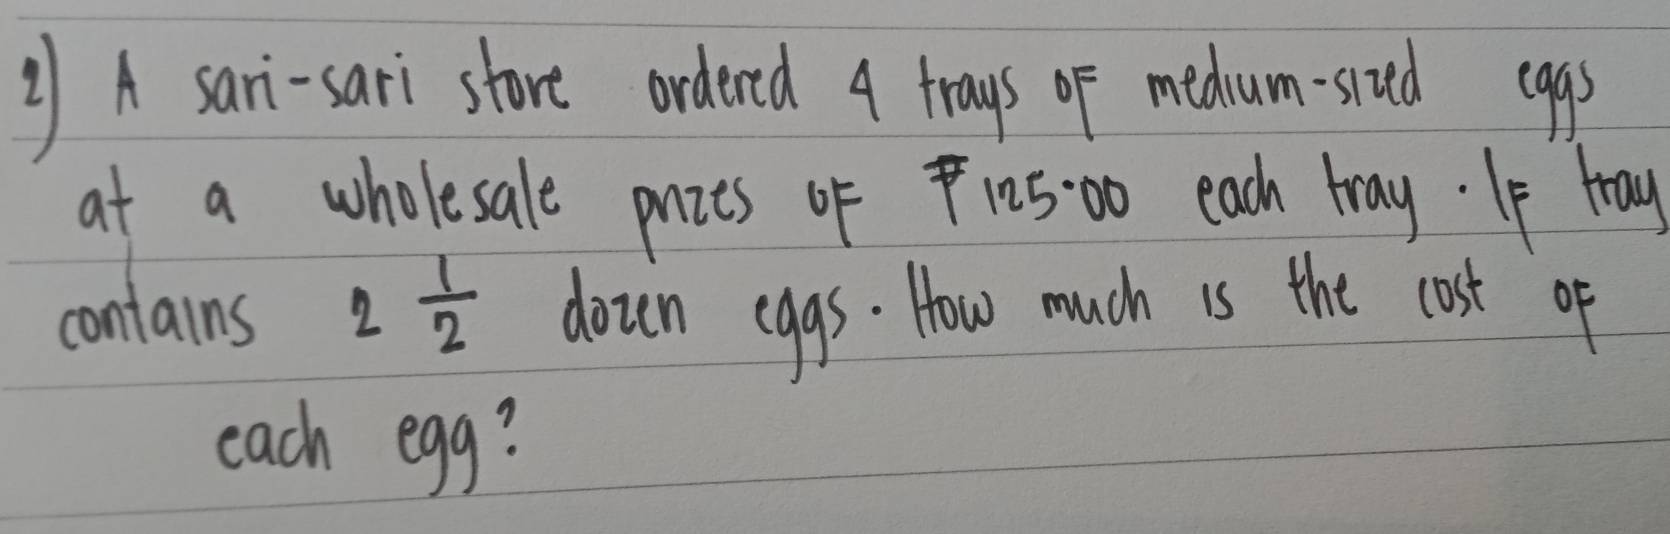 2) A sari-sari store ordered 4 trays of medium-sized eggs
at a wholesale prizes of ₱125.00 each tray. If tray
contains 2 1/2 dozen eggs. How much is the cost of
each egg?